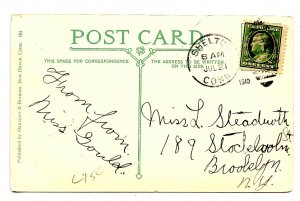 POST CARD
THIS SPACE FOR CORRESPONDENCE
THE ADDRESS TO BE WRITTEN ON THIS SIDE
SHELTON
8 AM
JUL 21
CONN.
From
Miss Gould.
Miss L. Steadworth
189 Stockholm St
Brooklyn
N.Y.
Published by Danziger & Berman, New Haven, Conn.